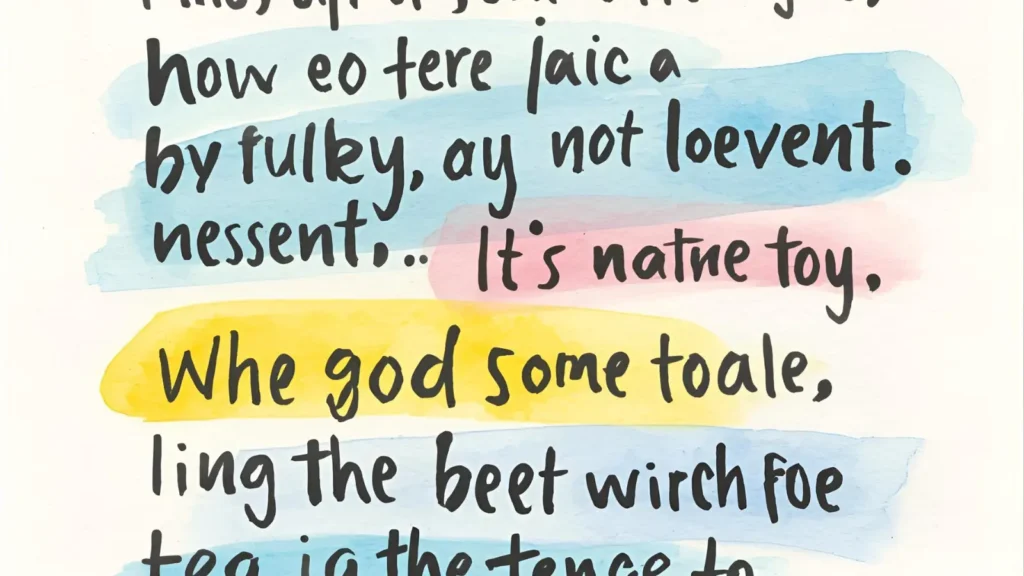 how eo tere jaic a
by fulky, ay not loevent.
nessent,..  It's natne toy.
Whe god some toale,
ling the beet wirch foe
tea is the tence to